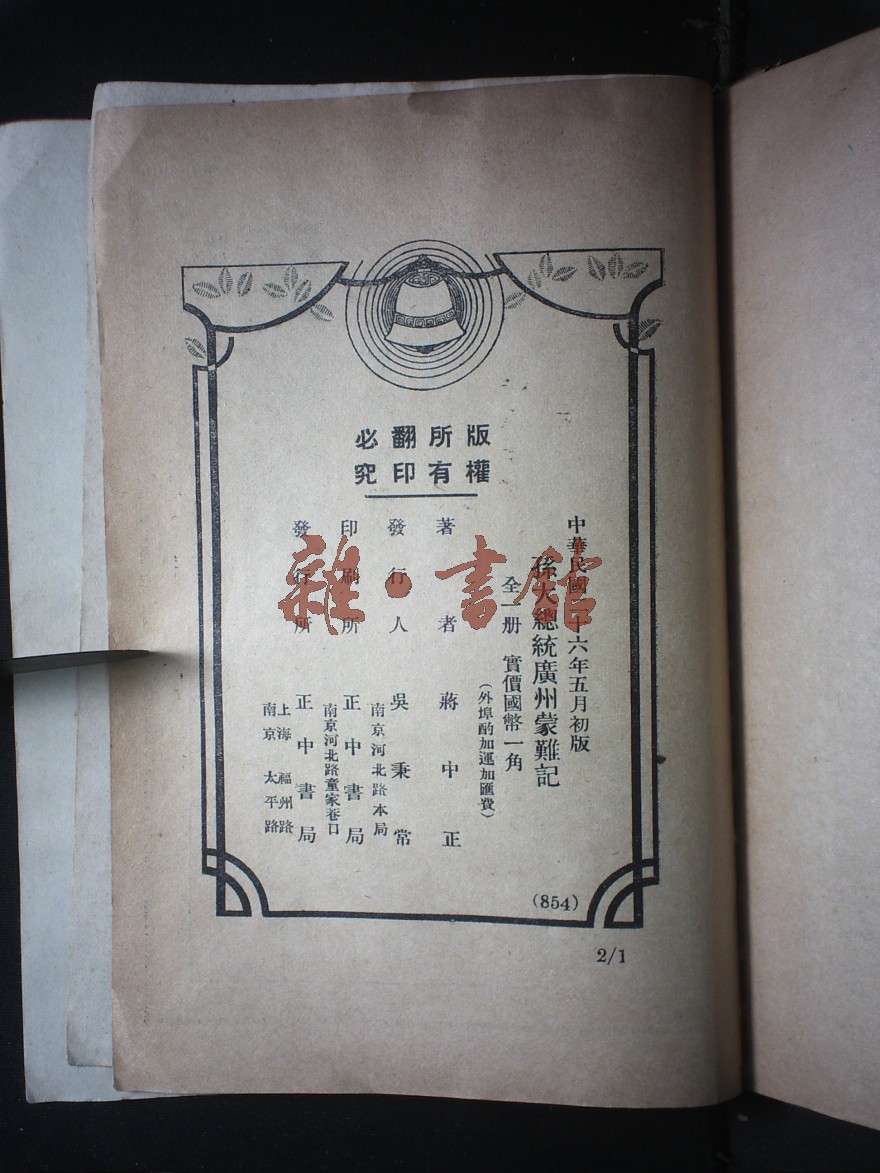 版權所有
翻印必究
中華民國二十六年五月初版
孫大總統廣州蒙難記
全一册 實價國幣一角
(外埠酌加運加匯費)
著者 蔣中正
發行人 吳秉常
南京河北路本局
印刷所 正中書局
南京河北路童家巷口
發行所 正中書局
上海福州路
南京太平路
(854)
2/1
雜·書館